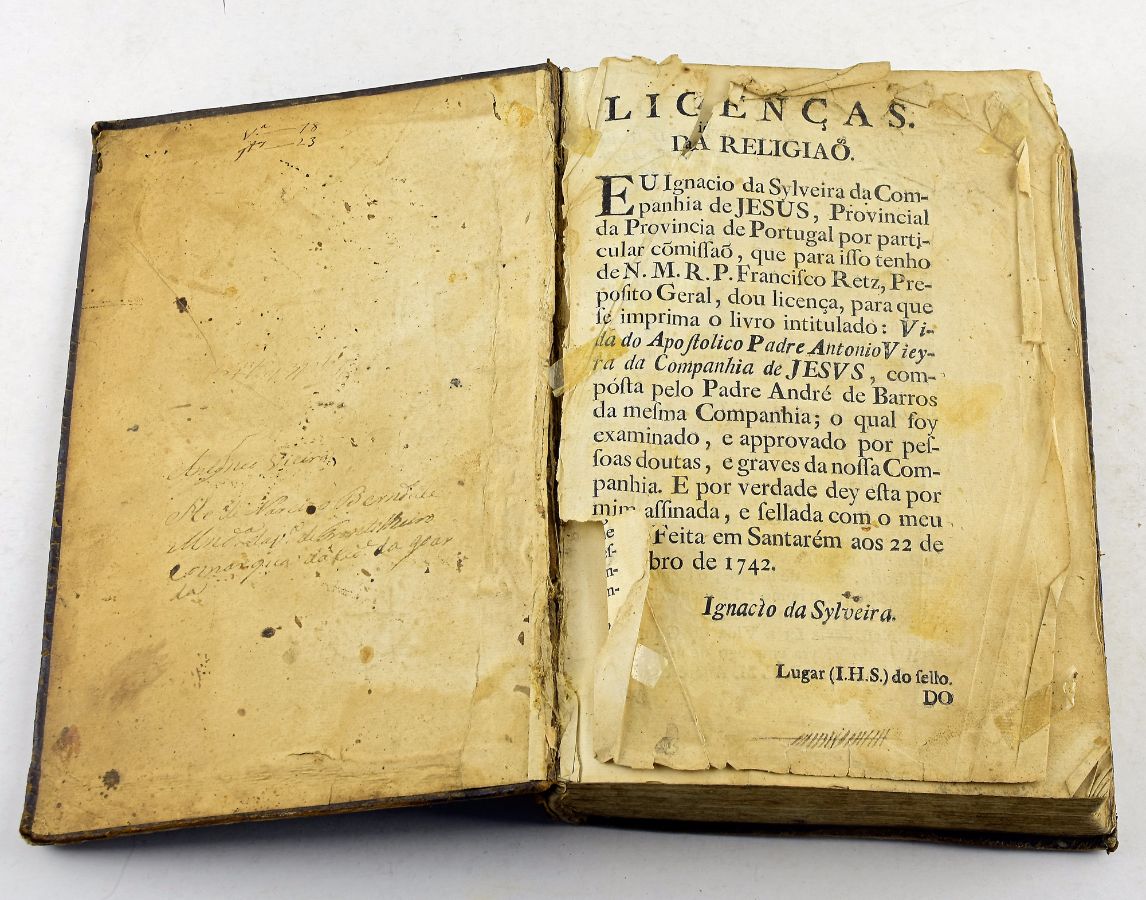 18
23
Vieira
LICENÇAS.
DA RELIGIAÕ.
EU Ignacio da Sylveira da Com-
panhia de JESUS, Provincial
da Provincia de Portugal por parti-
cular cõmiſſaõ, que para iſſo tenho
de N. M. R. P. Franciſco Retz, Pre-
poſito Geral, dou licença, para que
ſe imprima o livro intitulado: Vi-
da do Apoſtolico Padre Antonio Viey-
ra da Companhia de JESVS, com-
póſta pelo Padre André de Barros
da meſma Companhia; o qual foy
examinado, e approvado por peſ-
ſoas doutas, e graves da noſſa Com-
panhia. E por verdade dey eſta por
mim aſſinada, e ſellada com o meu
Feita em Santarém aos 22 de
bro de 1742.
Ignacio da Sylveira.
Lugar (I.H.S.) do ſello.
DO